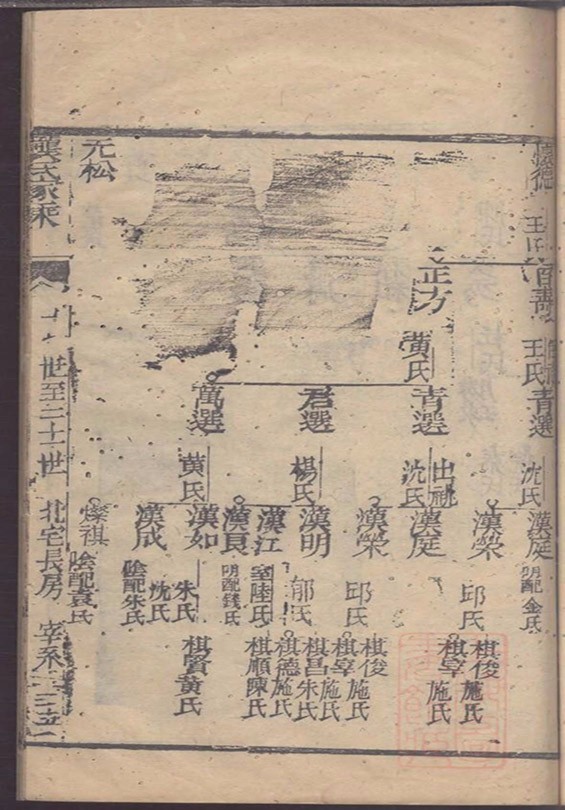 王氏
青選
沈氏
漢庭
明配金氏
漢榮
邱氏
棋俊
施氏
棋享
施氏
正方
黄氏
青選
出祧
沈氏
漢庭
漢榮
邱氏
棋俊
施氏
棋享
施氏
君選
楊氏
漢明
郁氏
棋昌
朱氏
棋德
施氏
漢江
室陸氏
棋順
陳氏
漢良
明配錢氏
萬選
黄氏
漢如
朱氏
沈氏
棋賢
黄氏
漢成
陰配朱氏
元松
燦祺
陰配袁氏
龔氏家乘
世至二十世
北宅長房
宰系